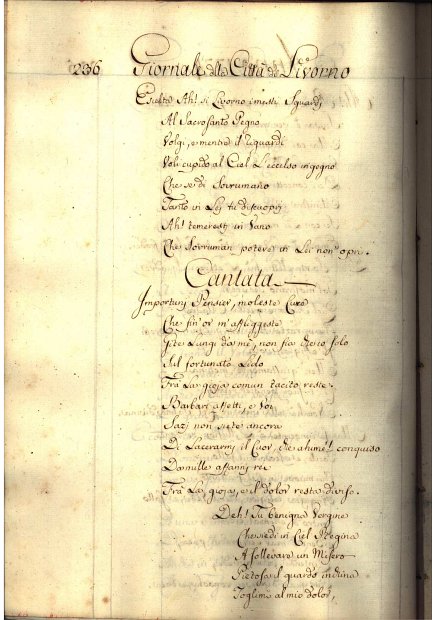 236 Giornale della Città di Livorno
Esulta Ah! Si Livorno i mesti Sguardi
Al Sacrosanto Pegno
Volgi, e mentre il riguardi
Voli cupido al Ciel l'eccelso ingegno
Che se di Sovrumano
Tanto in Lei tu discuopri
Ah! temeresti in Vano
Che Sovruman potere in Lei non opri.
Cantata
Importuni Pensier, moleste Cure
Che fin' or m'affliggeste
Ite Lungi da me, non fia ch'io solo
Sul fortunato Lido
Frà La gioja comun tacito reste.
Barbari affetti, e Voi
Sazj non siete ancora
Di Lacerarmi il Cuor, che ahimè! conquiso
Da mille affanni rei
Frà La gioja, e il dolor resta diviso.
Deh! Tu benigna Vergine
Che siedi in Ciel Regina
A sollevare un Misero
Pietosa il guardo inchina
Toglimi al mio dolor,